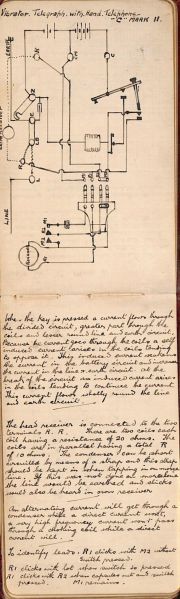 Vibrator Telegraph. with. Hand. Telephone-
"C" MARK II.
EARTH
LINE
When the key is pressed a current flows through
the divided circuit, greater part through the
coils and lesser round line and earth circuit.
Because the current goes through the coils a self
induced current arises in the coils tending
to oppose it. This induced current weakens
the current in the battery circuit and increases
the current in the line & earth circuit. On the
break of the circuit an induced current arises
in the coils tending to continue the current.
This current flows wholly round the line
and earth circuit.
The head receiver is connected to the two
terminals R. R. There are two coils each
coil having a resistance of 20 ohms. The
coils are in parallel having a total R
of 10 ohms. The condenser can be short
circuited by means of a strap and this strap
should be kept in when tapping in on a
line. If this was not done all
the line would be overheard and clicks
would also be heard in your receiver
An alternating current will get through a
condenser while a direct current wont,
a very high frequency current won't pass
through a choking coil while a direct
current will.
To identify leads. R1 clicks with M2 without
switch pressed.
R1 clicks with but when switch is pressed
R1 clicks with R2 when capsules out and switch
pressed. M1 remains.